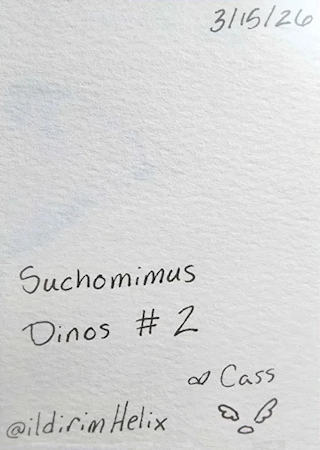 3/15/26
Suchomimus
Dinos # 2
∞ Cass
@ildirimHelix